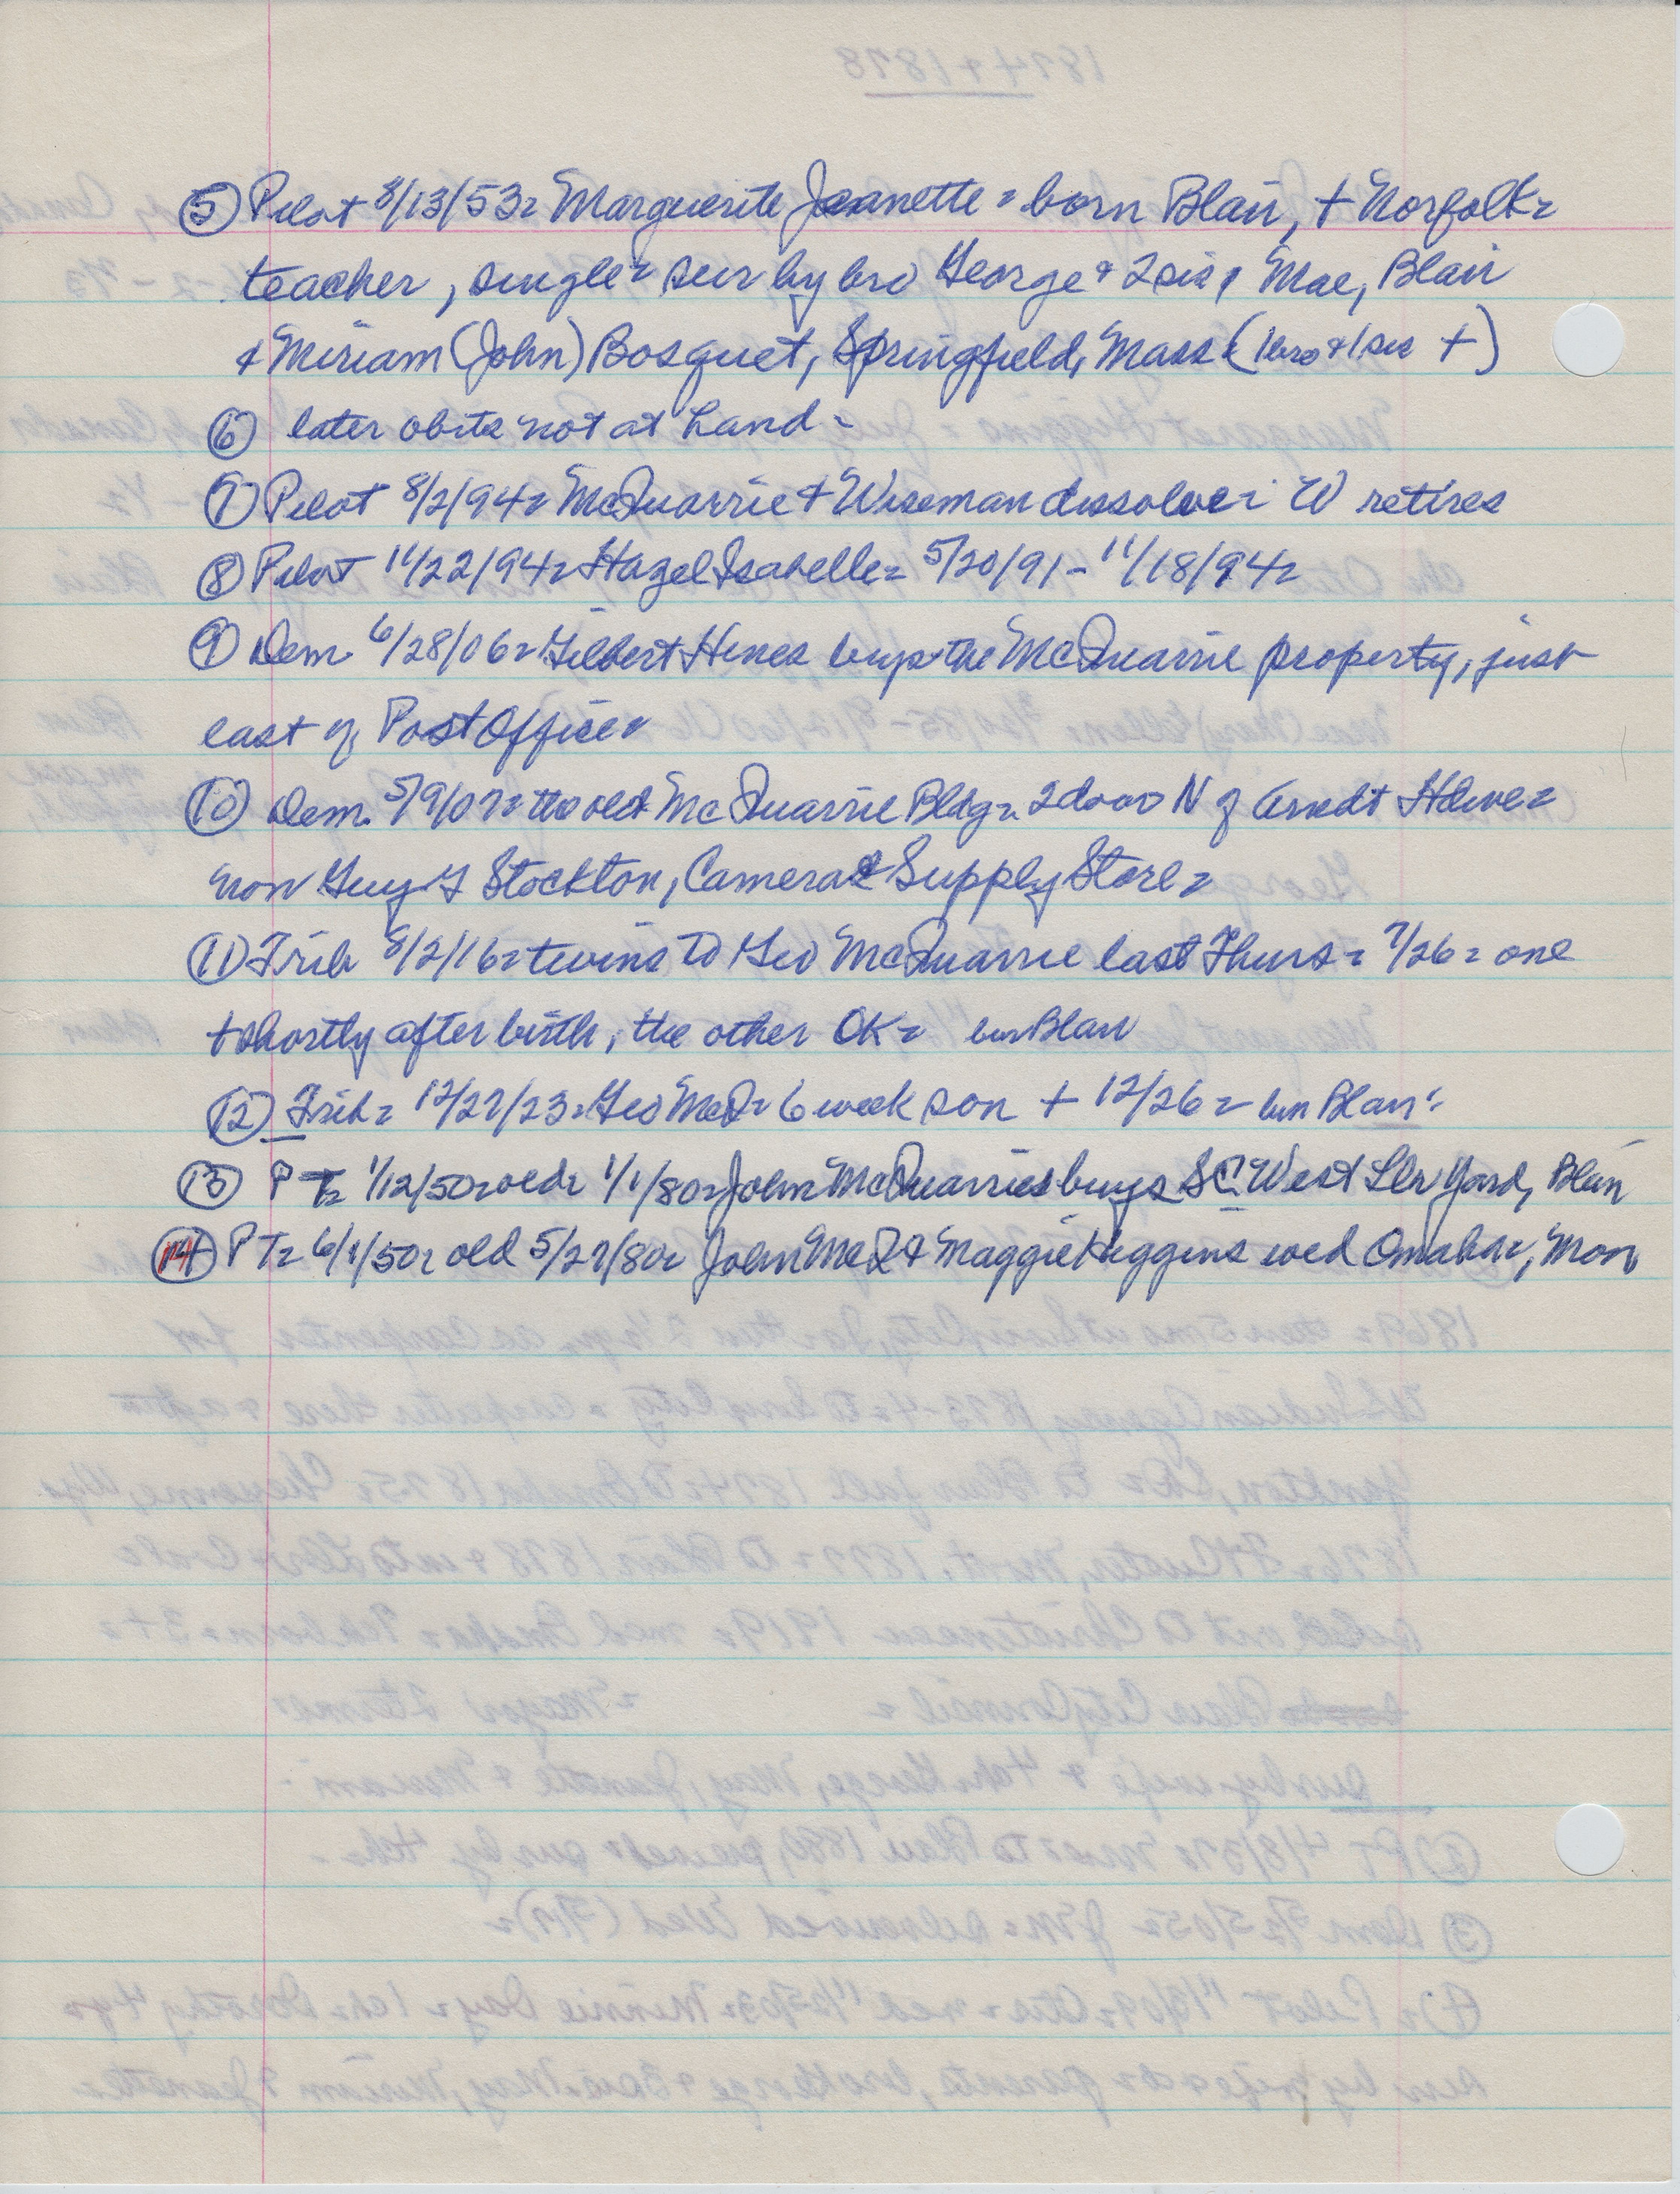 ⑤ Pilot 8/13/53= Marguerite Jeanette = born Blair, + Norfolk=
teacher, single= sur by bro George & 2 sis, Mae, Blair
& Miriam (John) Bosquet, Springfield, Mass (1 bro & 1 sis +)
⑥ later obits not at hand =
⑦ Pilot 8/2/94= McQuarrie & Wiseman dissolve = W retires
⑧ Pilot 11/22/94= Hazel Isabelle= 5/20/91 - 11/18/94=
⑨ Dem. 6/28/06= Gilbert Hines buys the McQuarrie property, just
east of Post Office=
⑩ Dem. 5/9/07= the old McQuarrie Bldg= 2 doors N of Arndt Hdwe=
now Guy Stockton, Camera & Supply Store=
⑪ Trib 8/2/16= twins to Geo McQuarrie last Thurs = 7/26 = one
+ shortly after birth, the other OK= bur Blair
⑫ Trib= 12/27/23= Geo McQ= 6 week son + 12/26= bur Blair=
⑬ P T= 1/12/50= old= 1/1/80= John McQuarrie buys S C West Lbr Yard, Blair
⑭ P T= 6/1/50= old 5/27/80= John McQ & Maggie Higgins wed Omaha=, Mon